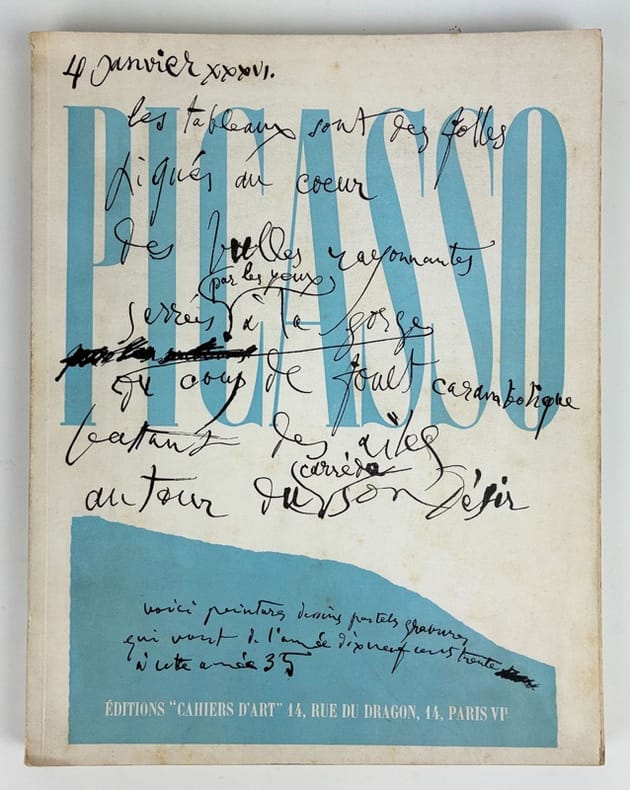 4 janvier XXXVI.
PICASSO
les tableaux sont des folles
piqués au coeur
des bulles rayonnantes
par les yeux
serrées à la gorge
du coup de fouet carambolique
battant des ailes
carré de
autour du son désir
voici peintures dessins pastels gravures
qui vont de l'année dixneuf cent trente
à cette année 35
ÉDITIONS "CAHIERS D'ART" 14, RUE DU DRAGON, 14, PARIS VIᵉ